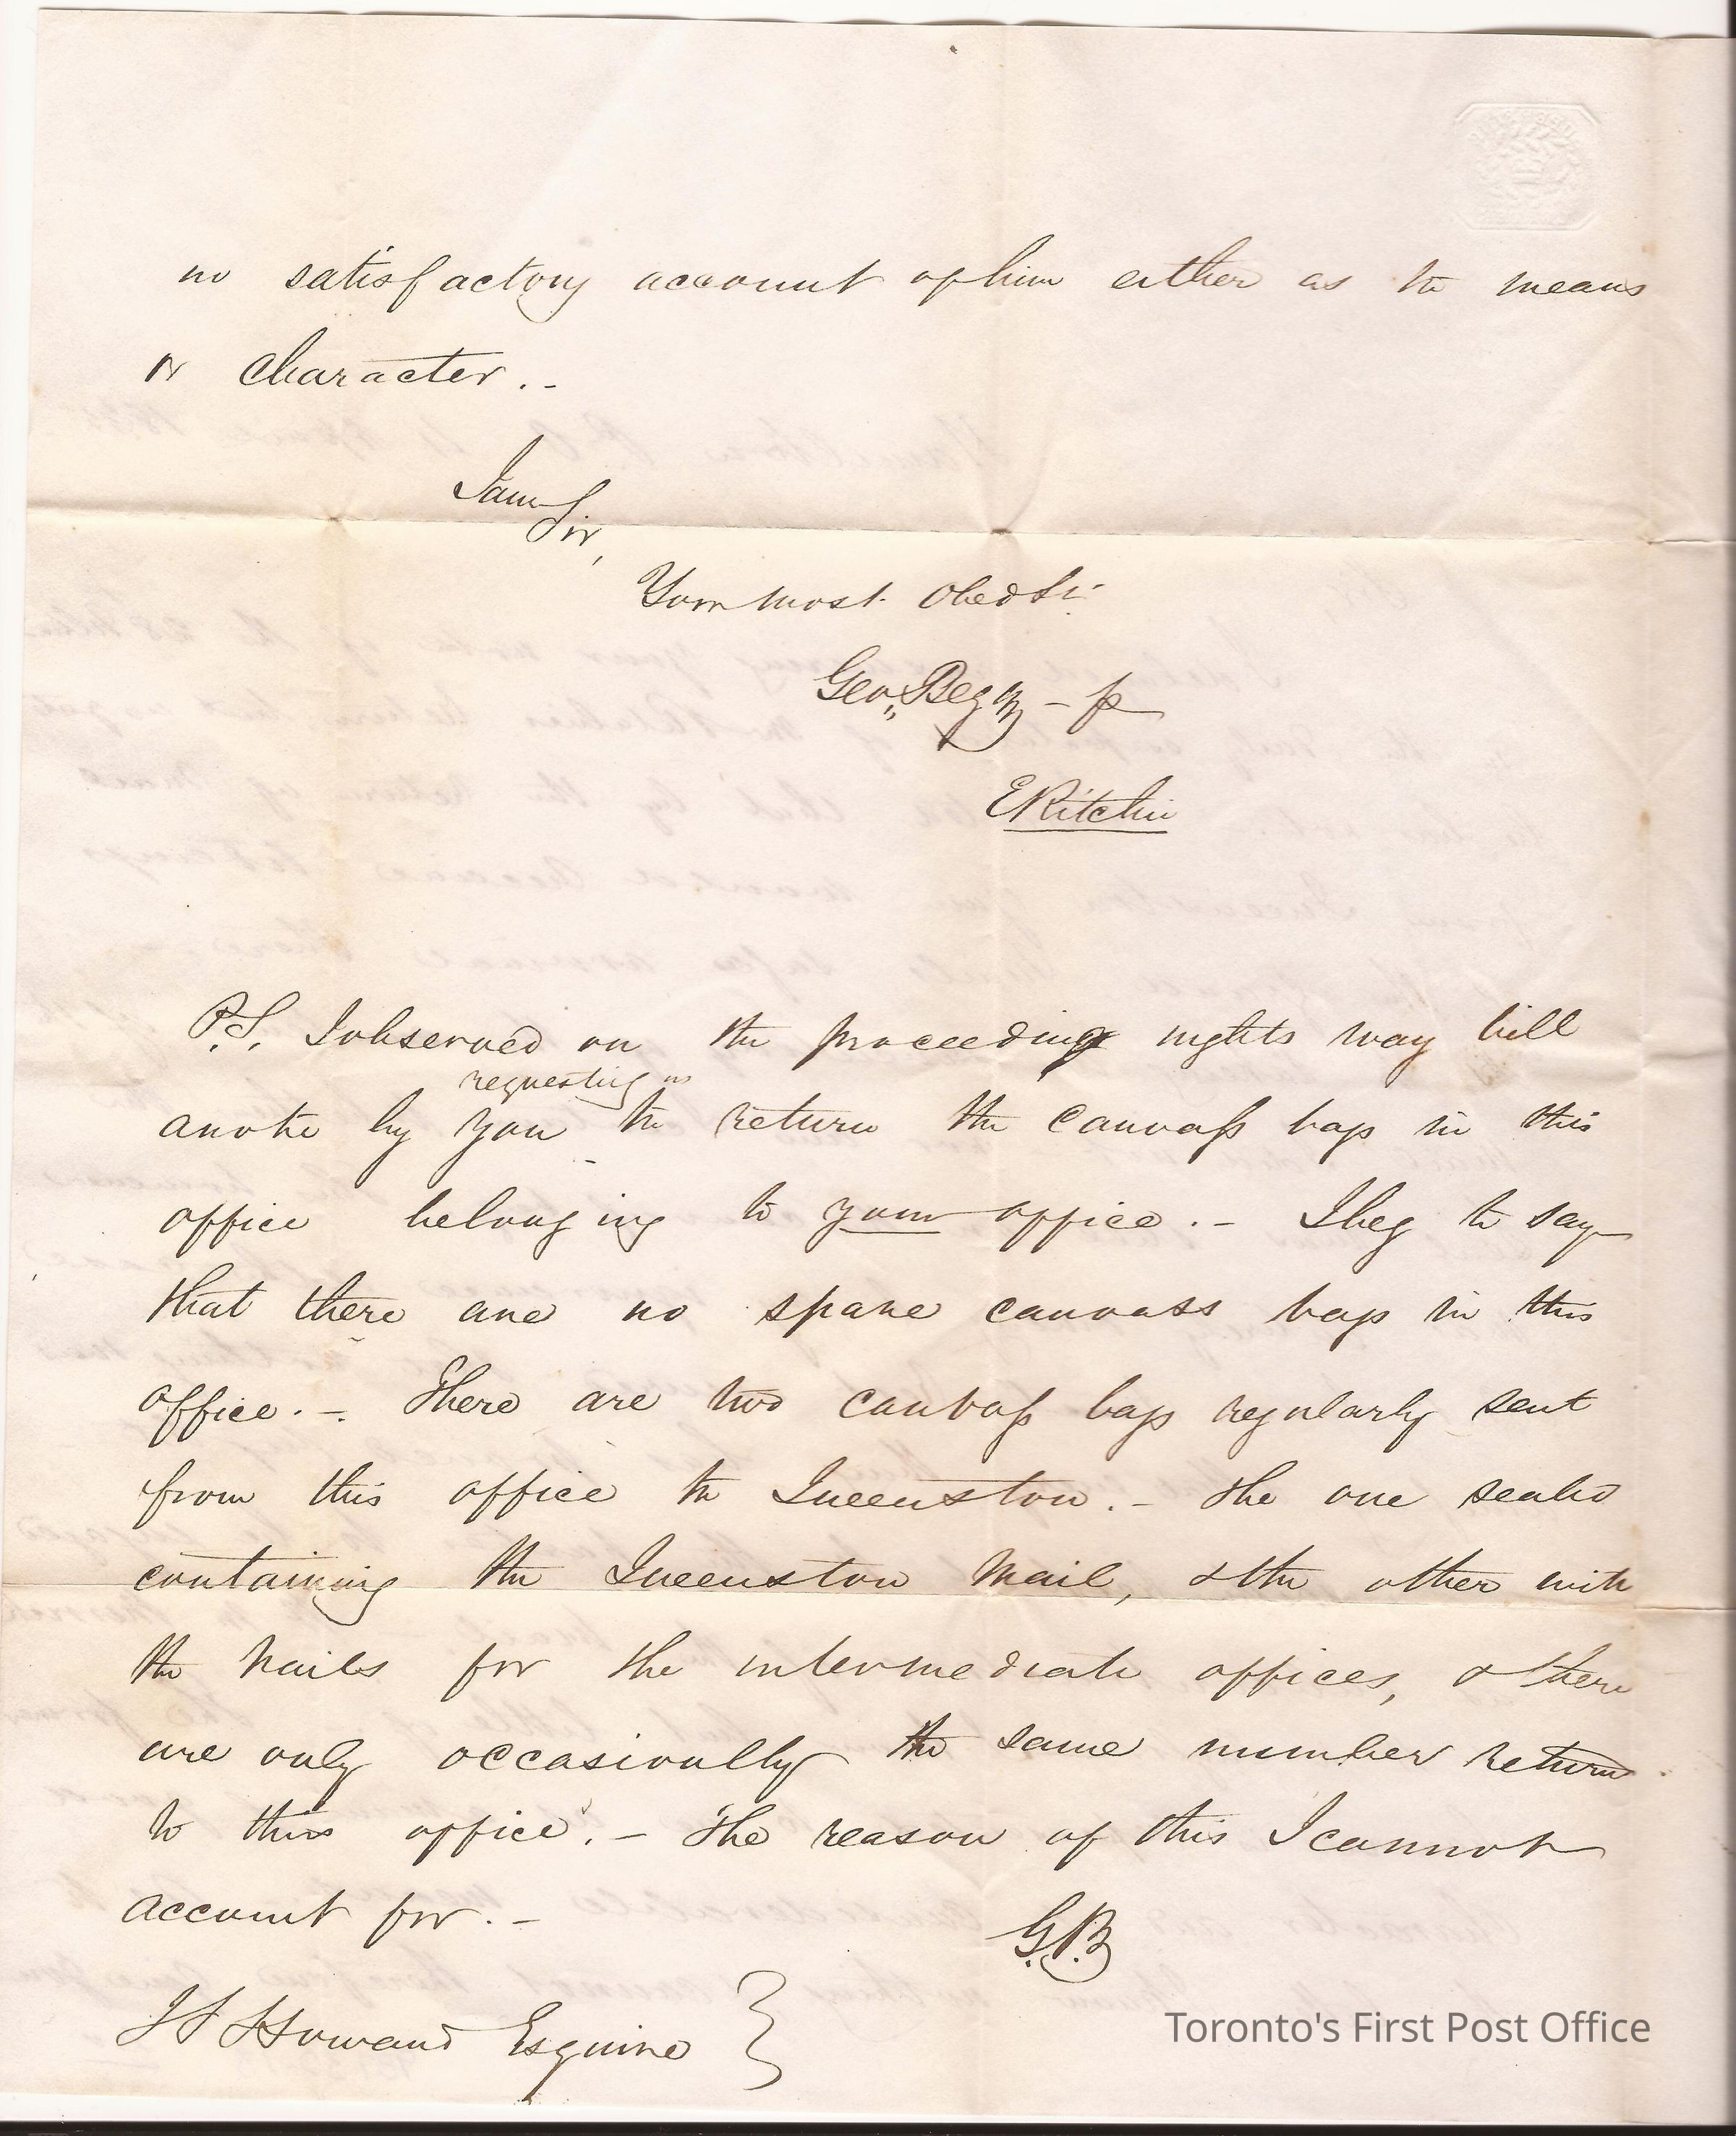 no satisfactory account of him either as to means
or character. -
I am Sir,
Your most Obedt
Geo,, Begg - p
E Ritchie
P.S. I observed on the proceeding nights way bill
requesting us
a note by you to return the canvass bags in this
office belonging to your office. - I beg to say
that there are no spare canvass bags in this
office. - There are two canvass bags regularly sent
from this office to Queenston. - The one sealed
containing the Queenston Mail, & the other with
the Mails for the intermediate offices, & there
are only occasionally the same number return
to this office. - The reason of this I cannot
account for. -
G.B
J S Howard Esquire }
Toronto's First Post Office